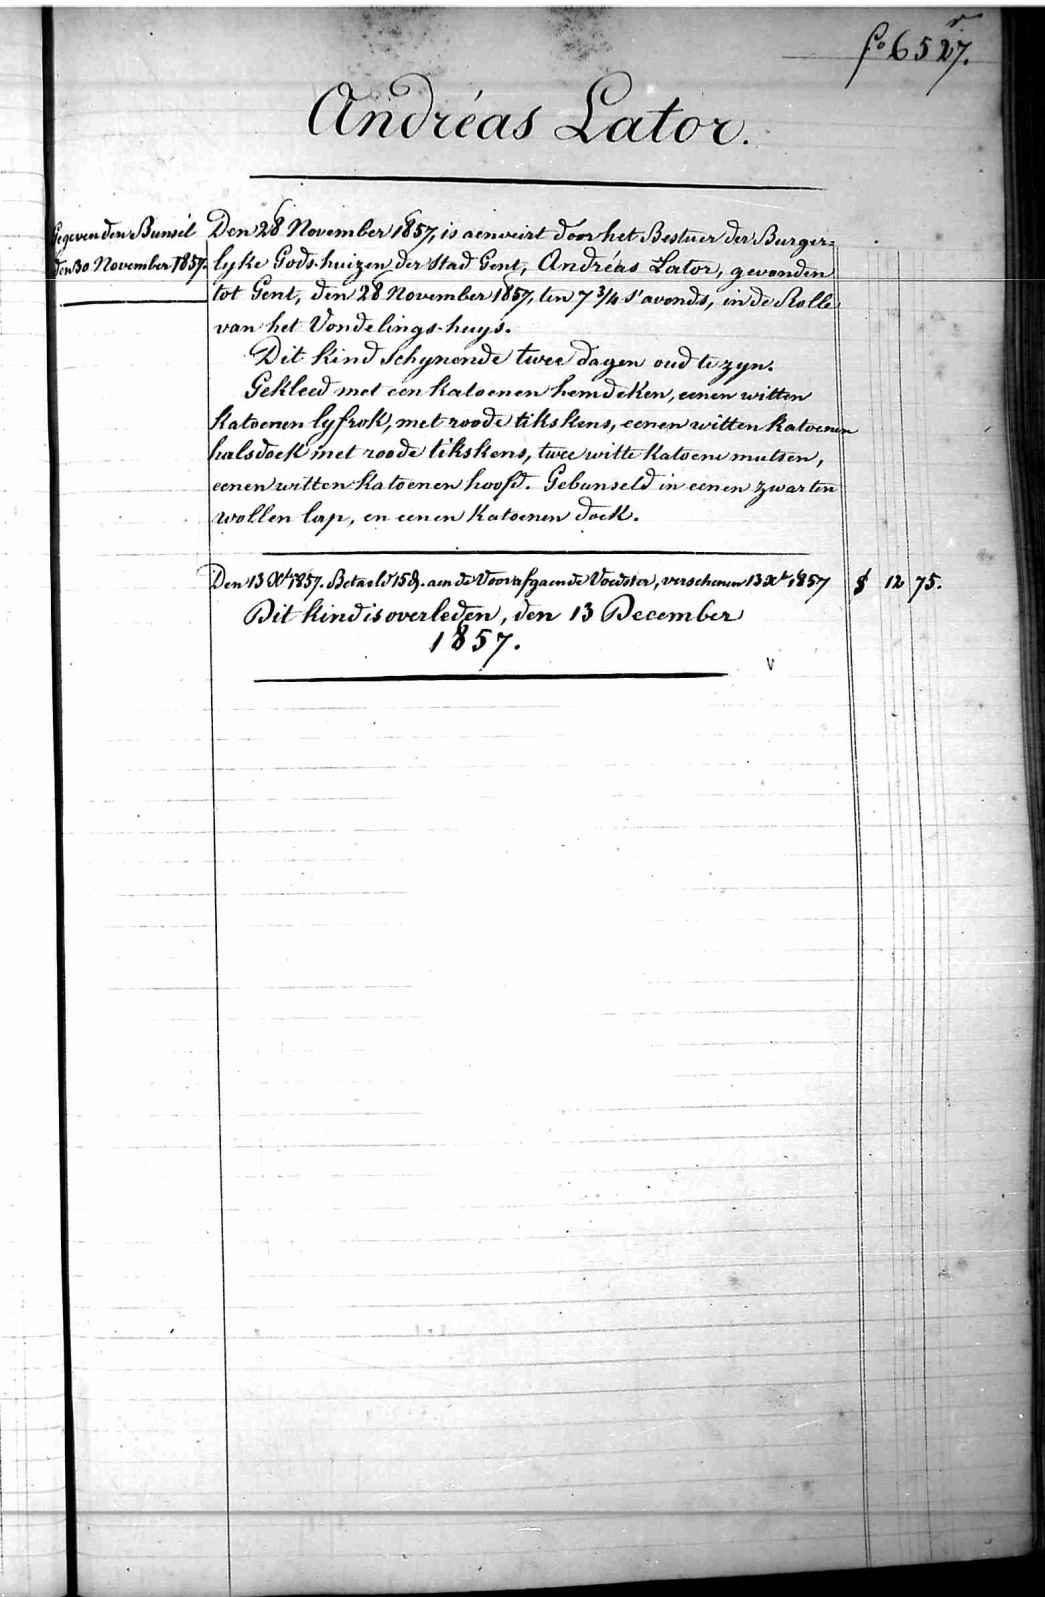 fo 6527. r
Andréas Lator.
Gegeven den Bunsel
den 30 November 1857.
Den 28 November 1857, is aenveirt door het Bestuer der Burger=
lyke Gods-huizen der Stad Gent, Andréas Lator, gevonden
tot Gent, den 28 November 1857, ten 7 3/4 s'avonds, in de Rolle
van het Vondelings-huys.
Dit kind Schynende twee dagen oud te zyn.
Gekleed met een katoenen hemdeken, eenen witten
katoenen lyfrok, met roode tikskens, eenen witten katoenen
halsdoek met roode tikskens, twee witte katoene mutsen,
eenen witten katoenen hoofd. Gebunseld in eenen zwarten
wollen lap, en eenen katoenen doek.
Den 13 Xb 1857. Betaeld 15 d. aen de Voorafgaende Voedster, verschenen 13 Xb 1857 12 75.
Dit kind is overleden, den 13 December
1857.
v